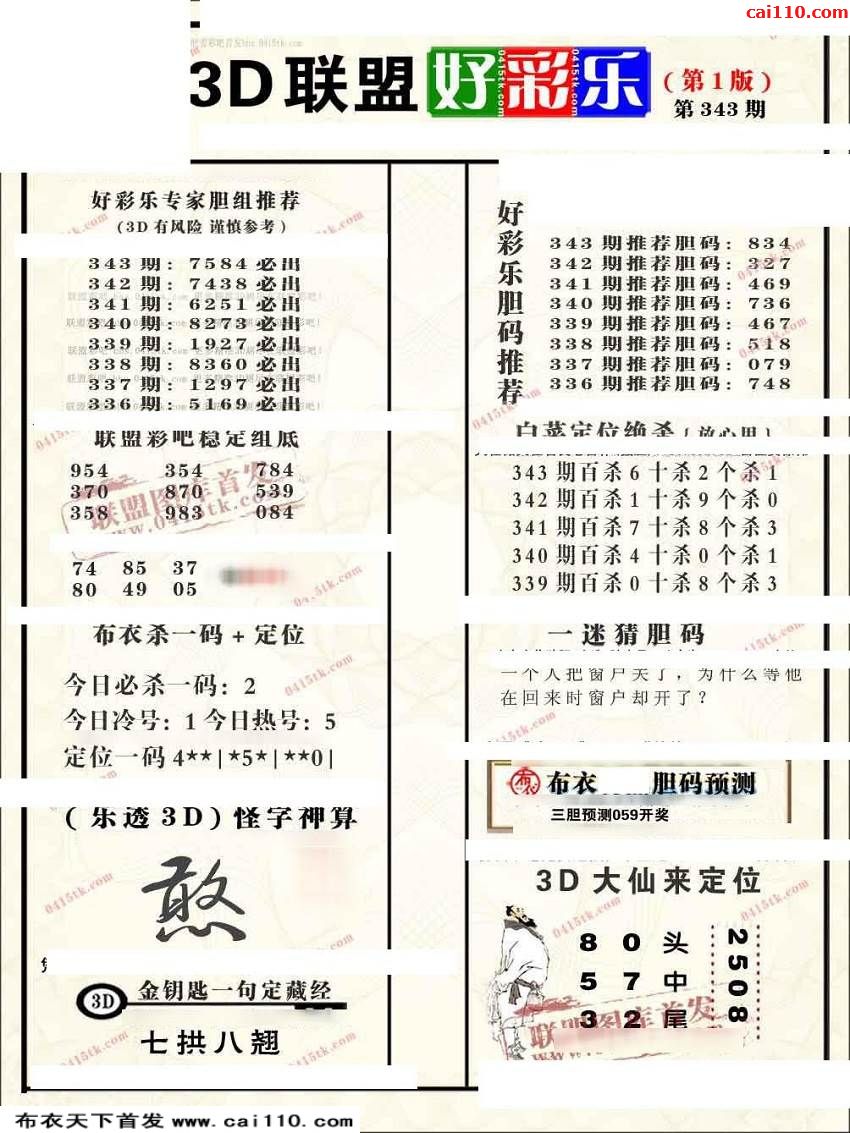 cai110.com
3D联盟好彩乐
0415tk.com
0415tk.com
0415tk.com
(第1版)
第343期
好彩乐专家胆组推荐
(3D有风险 谨慎参考)
343期：7584必出
342期：7438必出
341期：6251必出
340期：8273必出
339期：1927必出
338期：8360必出
337期：1297必出
336期：5169必出
联盟彩吧稳定组底
954 354 784
370 870 539
358 983 084
联盟图库首发
www.0415tk.com
74 85 37
80 49 05
布衣杀一码+定位
今日必杀一码：2
今日冷号：1 今日热号：5
定位一码 4**|*5*|**0|
(乐透3D)怪字神算
憨
3D 金钥匙一句定藏经
七拱八翘
好彩乐胆码推荐
343期推荐胆码：834
342期推荐胆码：327
341期推荐胆码：469
340期推荐胆码：736
339期推荐胆码：467
338期推荐胆码：518
337期推荐胆码：079
336期推荐胆码：748
白菜定位绝杀（放心用）
343期百杀6十杀2个杀1
342期百杀1十杀9个杀0
341期百杀7十杀8个杀3
340期百杀4十杀0个杀1
339期百杀0十杀8个杀3
一迷猜胆码
一个人把窗户关了，为什么等他
在回来时窗户却开了？
布 布衣 胆码预测
三胆预测059开奖
3D大仙来定位
8 0 头
5 7 中
3 2 尾
2508
联盟图库首发
0415tk.com
布衣天下首发 www.cai110.com